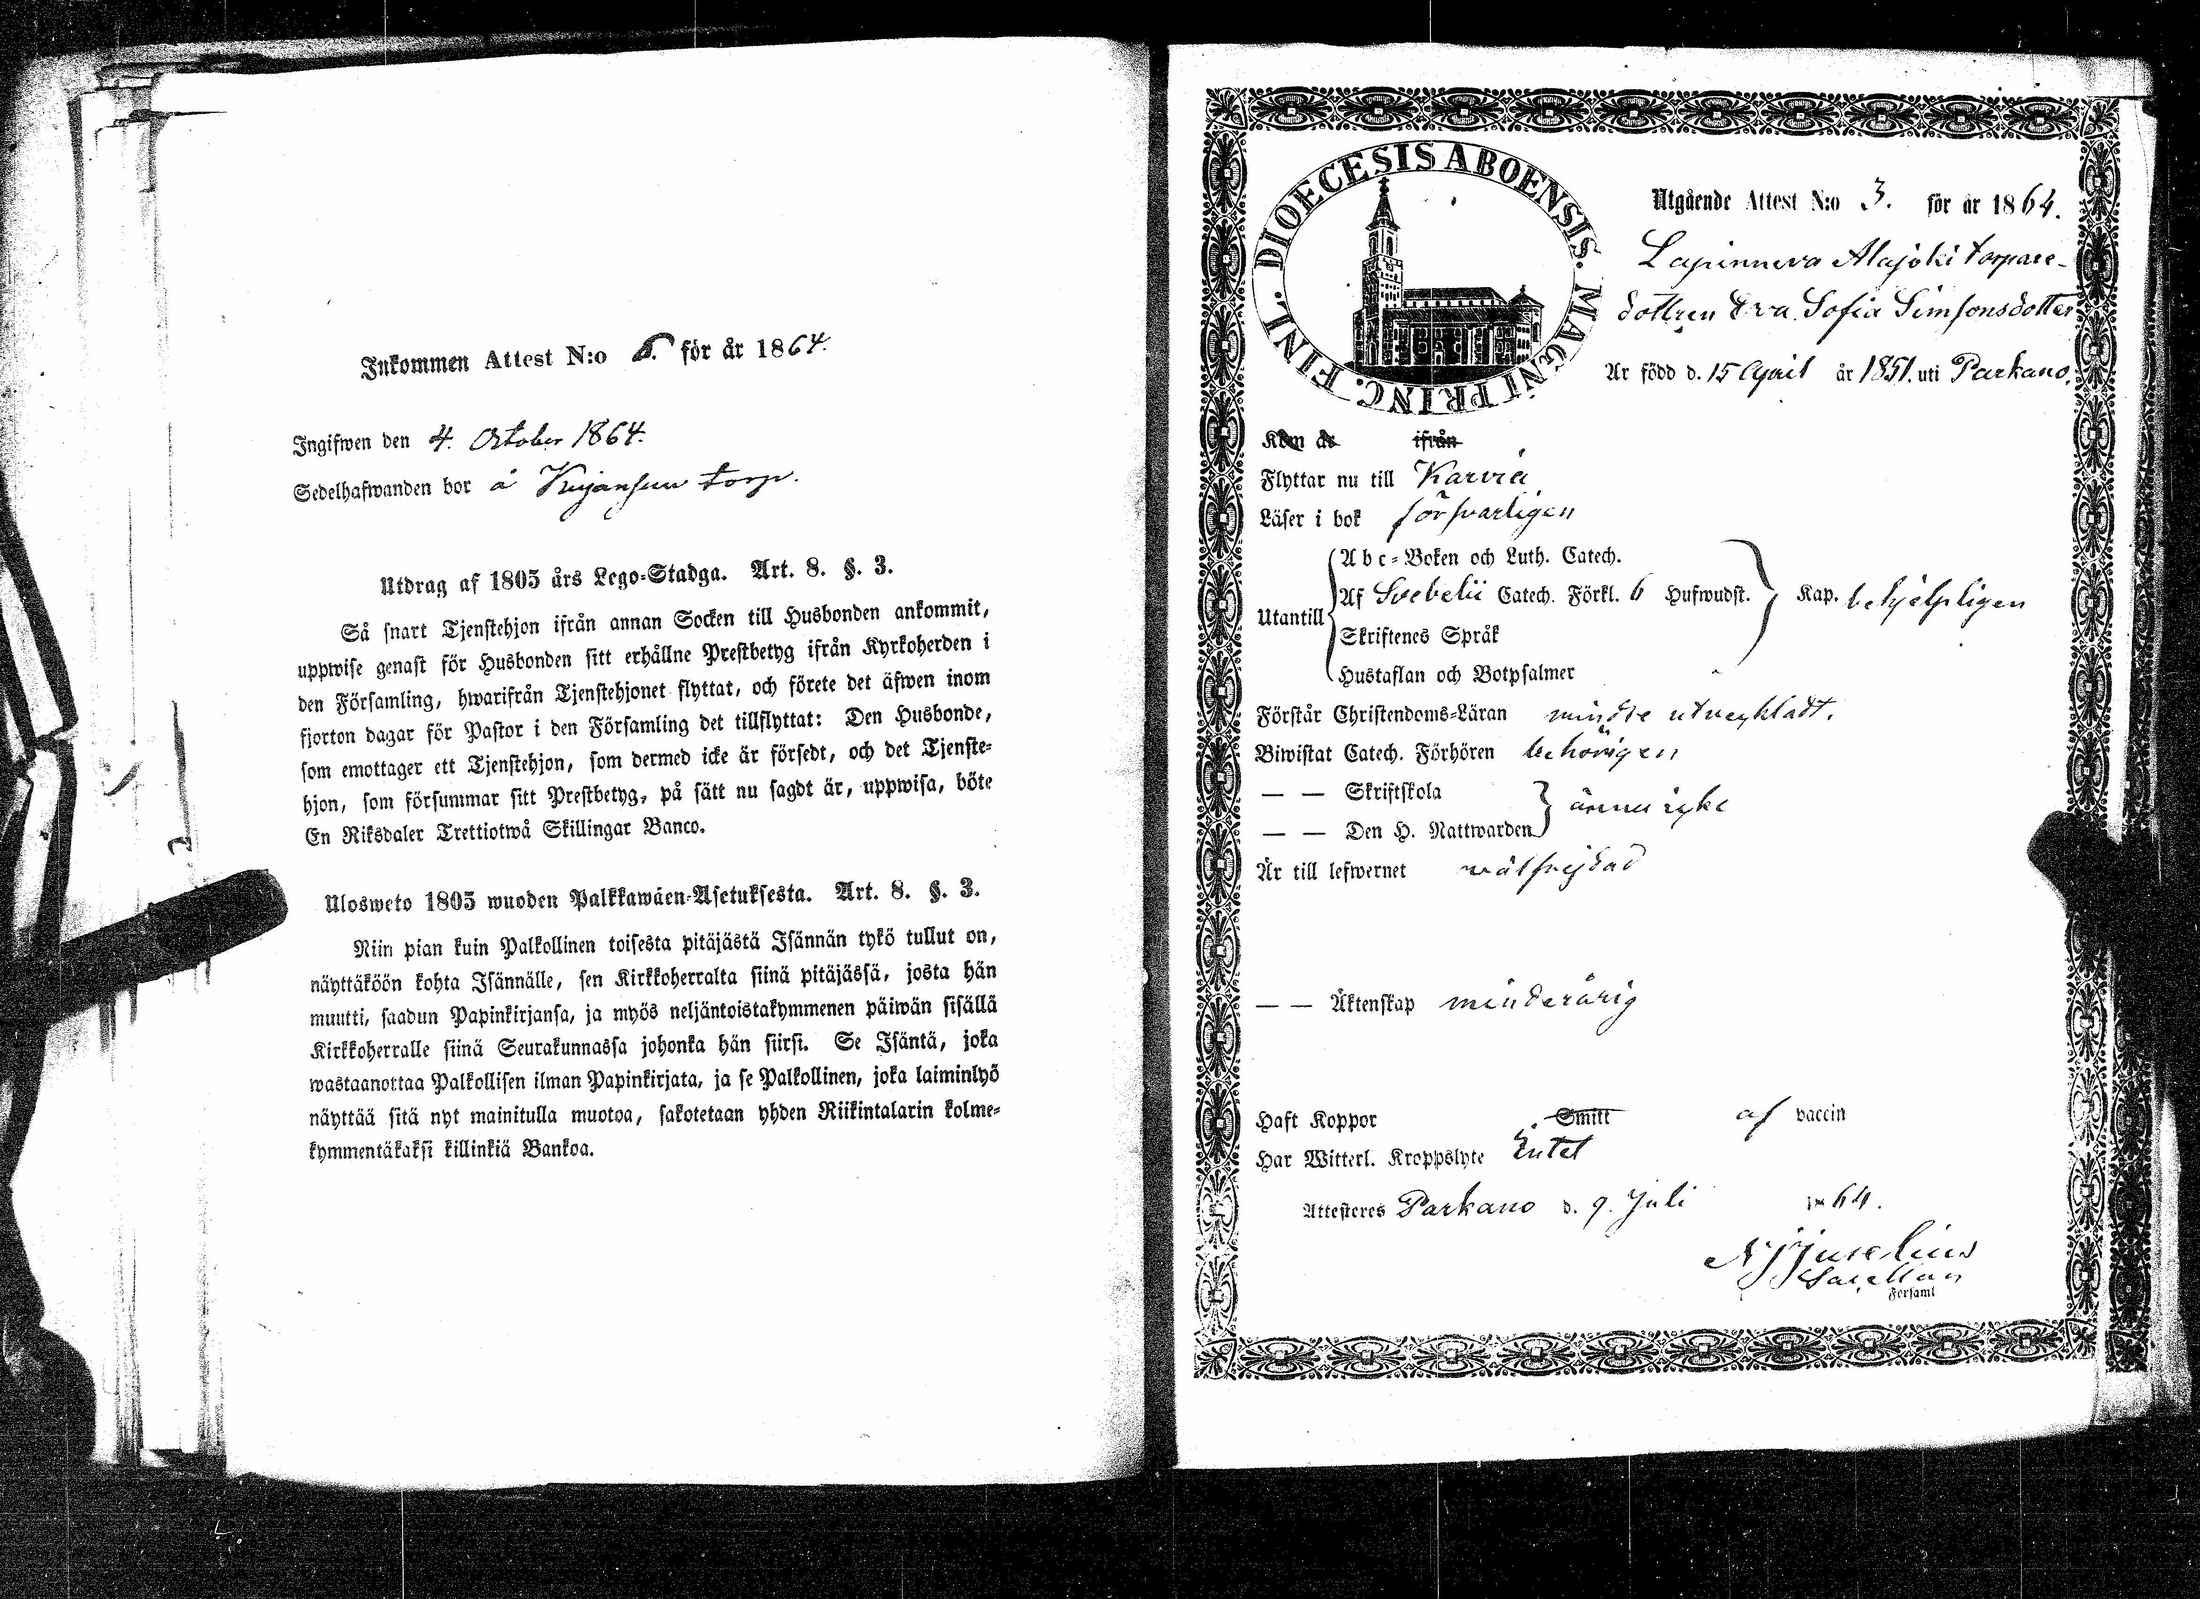 Inkommen Attest N:o 6. för år 1864.
Ingifwen den 4. October 1864.
Sedelhafwanden bor å torp.
Utdrag af 1805 års Lego-Stadga. Art. 8. §. 3.
Så snart Tjenstehjon ifrån annan Socken till Husbonden ankommit,
uppwise genast för Husbonden sitt erhållne Prestbetyg ifrån Kyrkoherden i
den Församling, hwarifrån Tjenstehjonet flyttat, och förete det äfwen inom
fjorton dagar för Pastor i den Församling det tillflyttat: Den Husbonde,
som emottager ett Tjenstehjon, som dermed icke är försedt, och det Tjenste-
hjon, som försummar sitt Prestbetyg, på sätt nu sagdt är, uppwisa, böte
En Riksdaler Trettiotwå Skillingar Banco.
Ulosweto 1805 wuoden Palkkawäen-Asetuksesta. Art. 8. §. 3.
Niin pian kuin Palkollinen toisesta pitäjästä Isännän tykö tullut on,
näyttäköön kohta Isännälle, sen Kirkkoherralta siinä pitäjässä, josta hän
muutti, saadun Papinkirjansa, ja myös neljäntoistakymmenen päiwän sisällä
Kirkkoherralle siinä Seurakunnassa johonka hän siirsi. Se Isäntä, joka
wastaanottaa Palkollisen ilman Papinkirjata, ja se Palkollinen, joka laiminlyö
näyttää sitä nyt mainitulla muotoa, sakotetaan yhden Riikintalarin kolme-
kymmentäkaksi killinkiä Bankoa.
DIOECESIS ABOENSIS. MAGNI PRINC. FINL.
Utgående Attest N:o 3. för år 1864.
Lapinneva Alajoki torpare-
dottren Eva Sofia Simsonsdotter
Är född d. 15 April år 1851. uti Parkano.
Kom år ifrån
Flyttar nu till Karvia
Läser i bok försvarligen
Utantill
Abc-Boken och Luth. Catech.
Af Svebelii Catech. Förkl. 6 Hufwudst. Kap. behjelpligen
Skriftenes Språk
Hustaflan och Botpsalmer
Förstår Christendoms-Läran mindre utveckladt.
Biwistat Catech. Förhören behörigen
— — Skriftskola
— — Den H. Nattwarden ännu icke
Är till lefwernet välfrejdad
— — Äktenskap minderårig
Haft Koppor Smitt af vaccin
Har Witterl. Kroppslyte Intet
Attesteres Parkano d. 9. Juli 1864.
Juselius
Sacellan
Församl